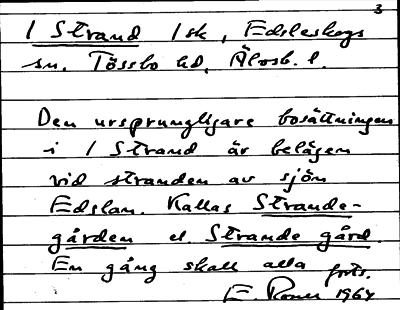 3
1 Strand 1 sk, Edsleskogs
sn. Tössbo hd, Älvsb. l.
Den ursprungligare bosättningen
i 1 Strand är belägen
vid stranden av sjön
Edslan. Kallas Strande-
gården el. Strande gård.
En gång skall alla forts.
E. 1964